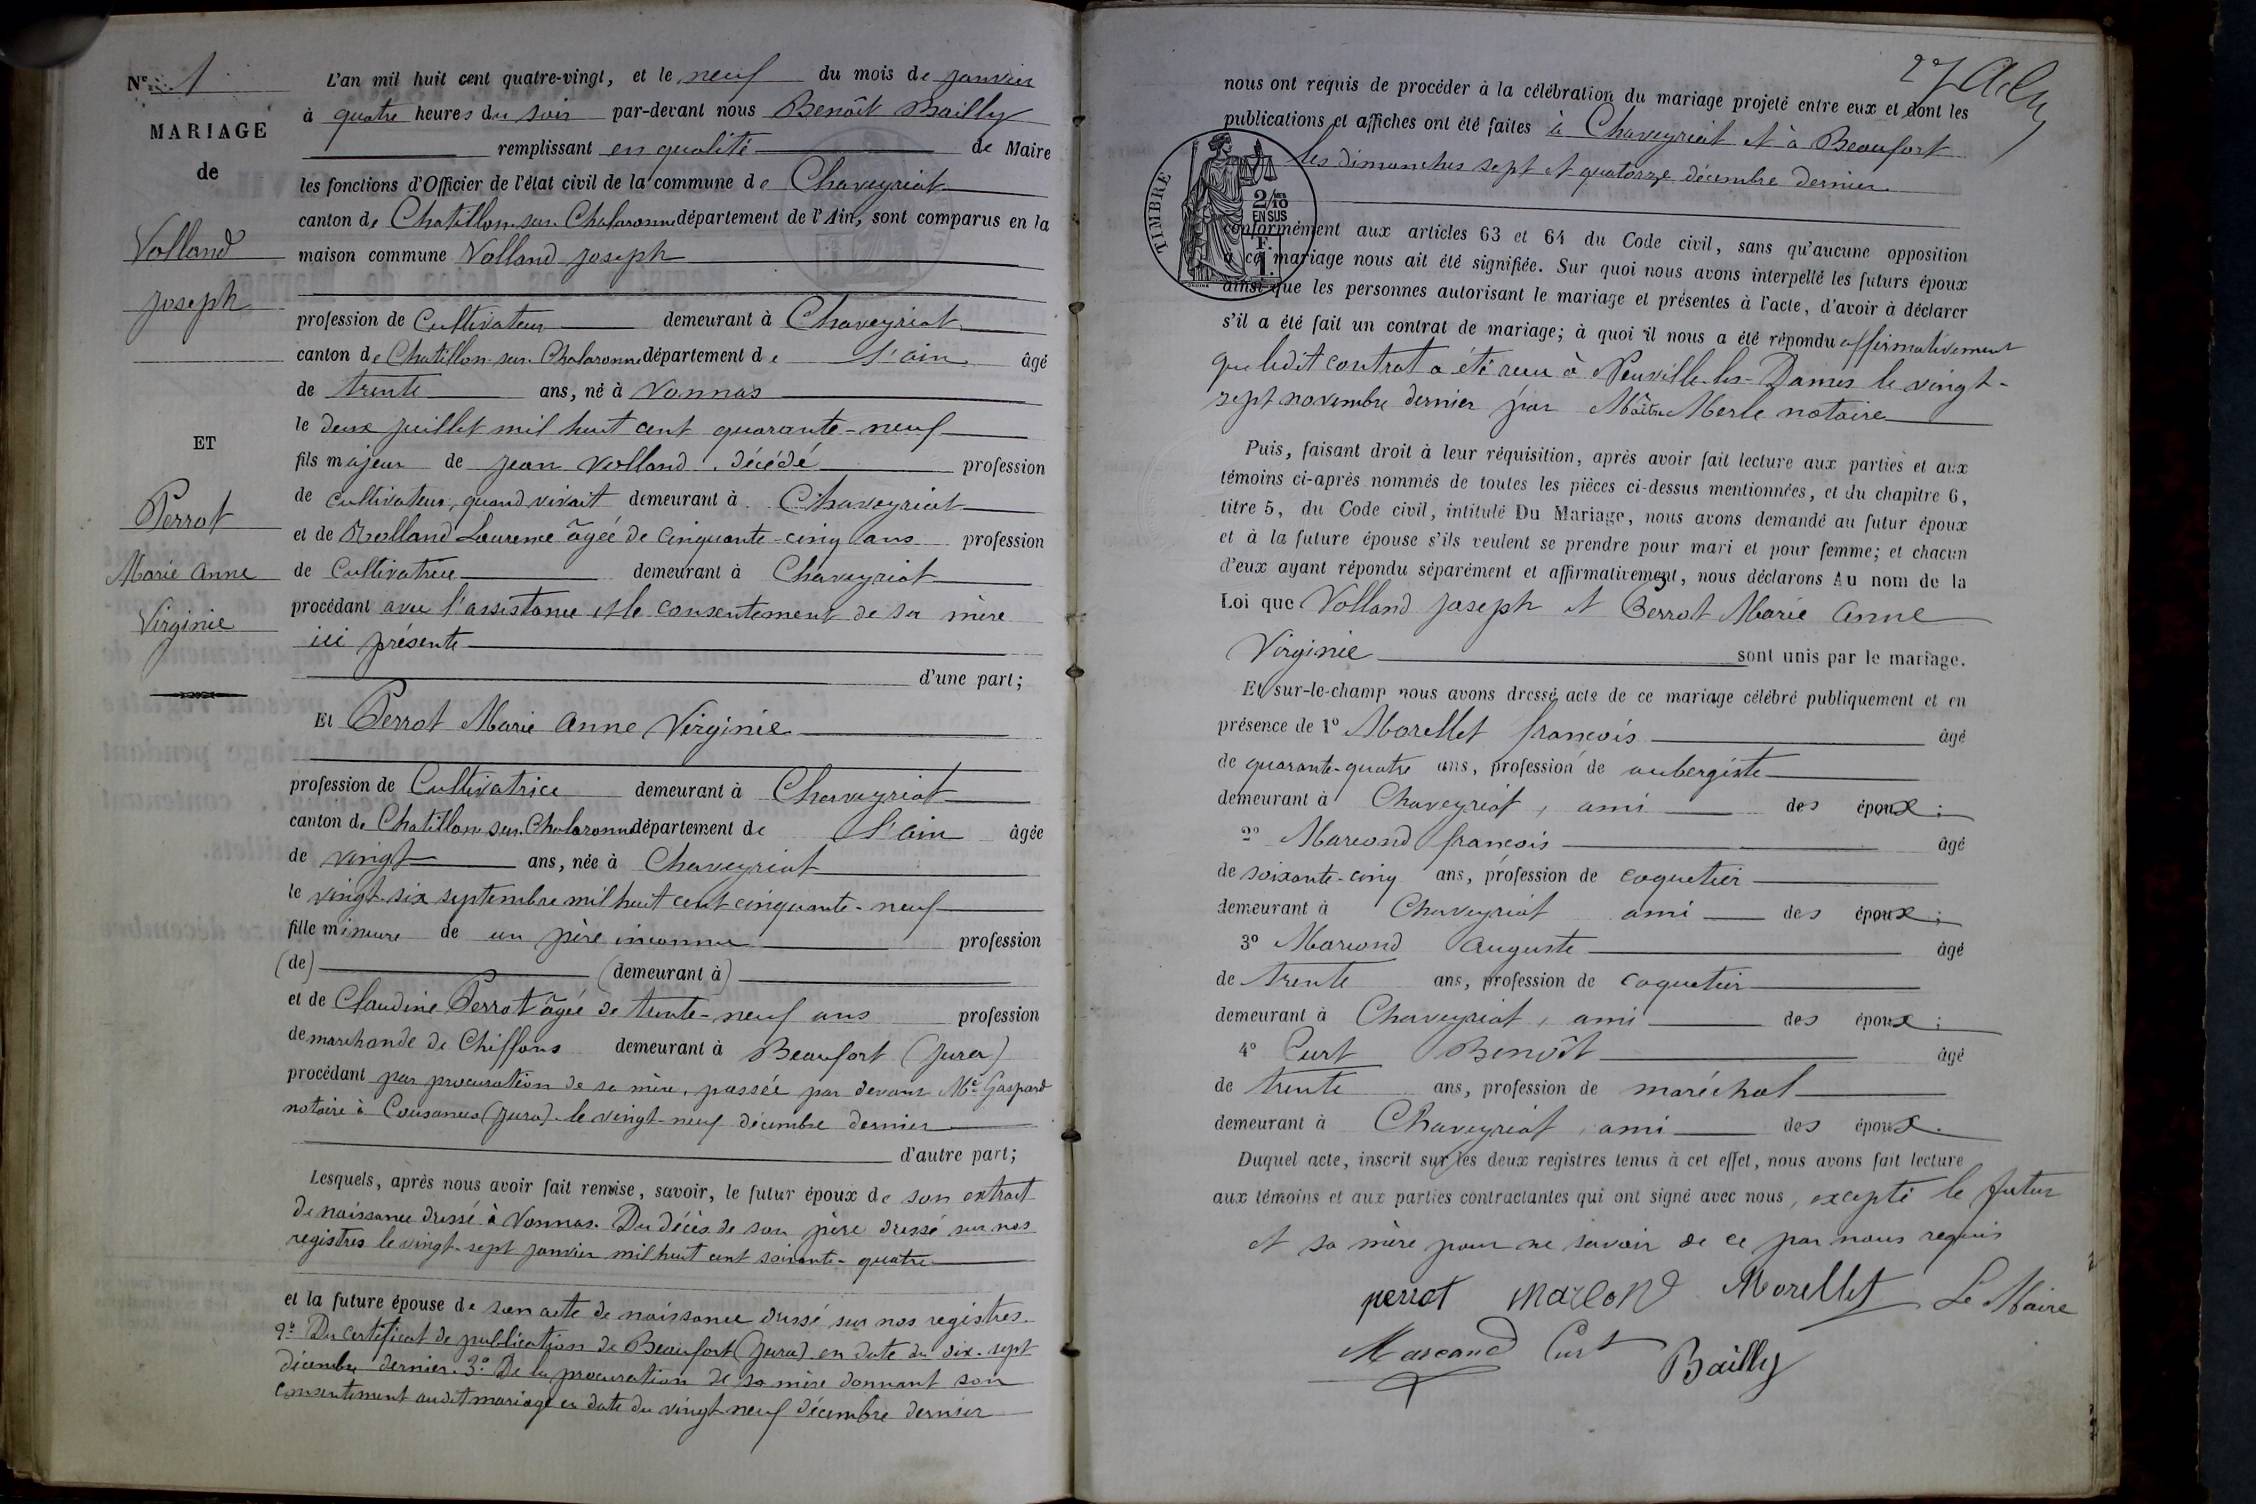 N° 1
MARIAGE
de
Volland
Joseph
ET
Perrot
Marie Anne
Virginie
L'an mil huit cent quatre-vingt, et le neuf du mois de janvier
à quatre heures du soir par-devant nous Benoît Bailly
remplissant en qualité de Maire
les fonctions d'Officier de l'état civil de la commune de Chaveyriat
canton de Chatillon-sur-Chalaronne département de l'Ain, sont comparus en la
maison commune Volland Joseph
profession de Cultivateur demeurant à Chaveyriat
canton de Chatillon-sur-Chalaronne département de l'ain âgé
de trente ans, né à Vonnas
le deux juillet mil huit cent quarante-neuf
fils majeur de Jean Volland, décédé profession
de cultivateur, quand vivait demeurant à Chaveyriat
et de Laurence âgée de cinquante-cinq ans profession
de Cultivatrice demeurant à Chaveyriat
procédant avec l'assistance et le consentement de sa mère
ici présente
d'une part;
Et Perrot Marie Anne Virginie
profession de Cultivatrice demeurant à Chaveyriat
canton de Chatillon-sur-Chalaronne département de l'ain âgée
de vingt ans, née à Chaveyriat
le vingt-six septembre mil huit cent cinquante-neuf
fille mineure de un père inconnu profession
(de) (demeurant à)
et de Claudine Perrot âgée de trente-neuf ans profession
de marchande de Chiffons demeurant à Beaufort (Jura)
procédant par procuration de sa mère, passée par devant Me Gaspard
notaire à Cousance (Jura) le vingt-neuf décembre dernier
d'autre part;
Lesquels, après nous avoir fait remise, savoir, le futur époux de son extrait
de naissance dressé à Vonnas. Du décès de son père dressé sur nos
registres le vingt-sept janvier mil huit cent soixante-quatre
et la future épouse de son acte de naissance dressé sur nos registres.
2° Du certificat de publication de Beaufort (Jura) en date du dix-sept
décembre dernier. 3° De la procuration de sa mère donnant son
consentement audit mariage en date du vingt neuf décembre dernier
nous ont requis de procéder à la célébration du mariage projeté entre eux et dont les
publications et affiches ont été faites à Chaveyriat et à Beaufort
les dimanches sept et quatorze décembre dernier
TIMBRE
2/10
EN SUS
F.
1.
conformément aux articles 63 et 64 du Code civil, sans qu'aucune opposition
à ce mariage nous ait été signifiée. Sur quoi nous avons interpellé les futurs époux
ainsi que les personnes autorisant le mariage et présentes à l'acte, d'avoir à déclarer
s'il a été fait un contrat de mariage; à quoi il nous a été répondu affirmativement
que ledit contrat a été reçu à Neuville-les-Dames le vingt-
sept novembre dernier par Maître Merle notaire
Puis, faisant droit à leur réquisition, après avoir fait lecture aux parties et aux
témoins ci-après nommés de toutes les pièces ci-dessus mentionnées, et du chapitre 6,
titre 5, du Code civil, intitulé Du Mariage, nous avons demandé au futur époux
et à la future épouse s'ils veulent se prendre pour mari et pour femme; et chacun
d'eux ayant répondu séparément et affirmativement, nous déclarons Au nom de la
Loi que Volland Joseph et Perrot Marie Anne
Virginie sont unis par le mariage.
Et sur-le-champ nous avons dressé acte de ce mariage célébré publiquement et en
présence de 1° Morellet françois âgé
de quarante-quatre ans, profession de aubergiste
demeurant à Chaveyriat, ami des époux;
2° françois âgé
de soixante-cinq ans, profession de coquetier
demeurant à Chaveyriat ami des époux;
3° Auguste âgé
de trente ans, profession de coquetier
demeurant à Chaveyriat, ami des époux;
4° Curt Benoît âgé
de trente ans, profession de maréchal
demeurant à Chaveyriat, ami des époux.
Duquel acte, inscrit sur les deux registres tenus à cet effet, nous avons fait lecture
aux témoins et aux parties contractantes qui ont signé avec nous, excepté le futur
et sa mère pour ne savoir de ce par nous requis
perrot Morellet Le Maire
Curt Bailly